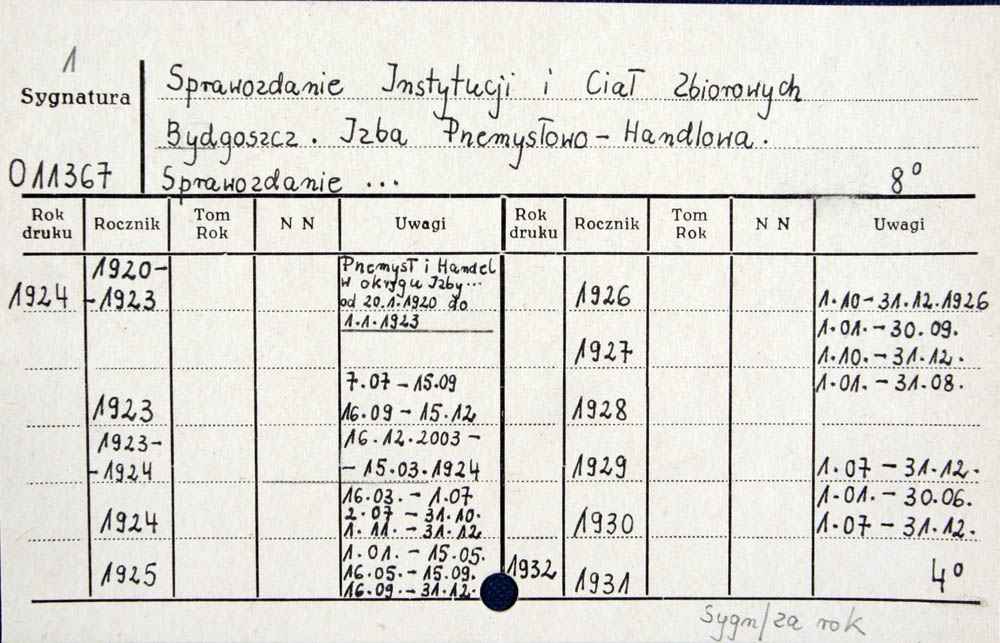 1
Sygnatura
Sprawozdanie Instytucji i Ciał Zbiorowych
Bydgoszcz. Izba Pnemysłowo-Handlowa.
011367
Sprawozdanie ...
8°
Rok druku
Rocznik
Tom Rok
N N
Uwagi
Rok druku
Rocznik
Tom Rok
N N
Uwagi
1924
1920-
-1923
Pnemysł i Handel
w okręgu Izby...
od 20.1.1920 do
1.1.1923
1923
7.07 - 15.09
16.09 - 15.12
1923-
-1924
16.12.2003 -
- 15.03.1924
1924
16.03. - 1.07
2.07 - 31.10.
1.11. - 31.12
1925
1.01. - 15.05.
16.05. - 15.09.
16.09. - 31.12.
1926
1.10 - 31.12.1926
1927
1.01. - 30.09.
1.10. - 31.12.
1928
1.01. - 31.08.
1929
1.07 - 31.12.
1930
1.01. - 30.06.
1.07 - 31.12.
1932
1931
4°
Sygn/za rok